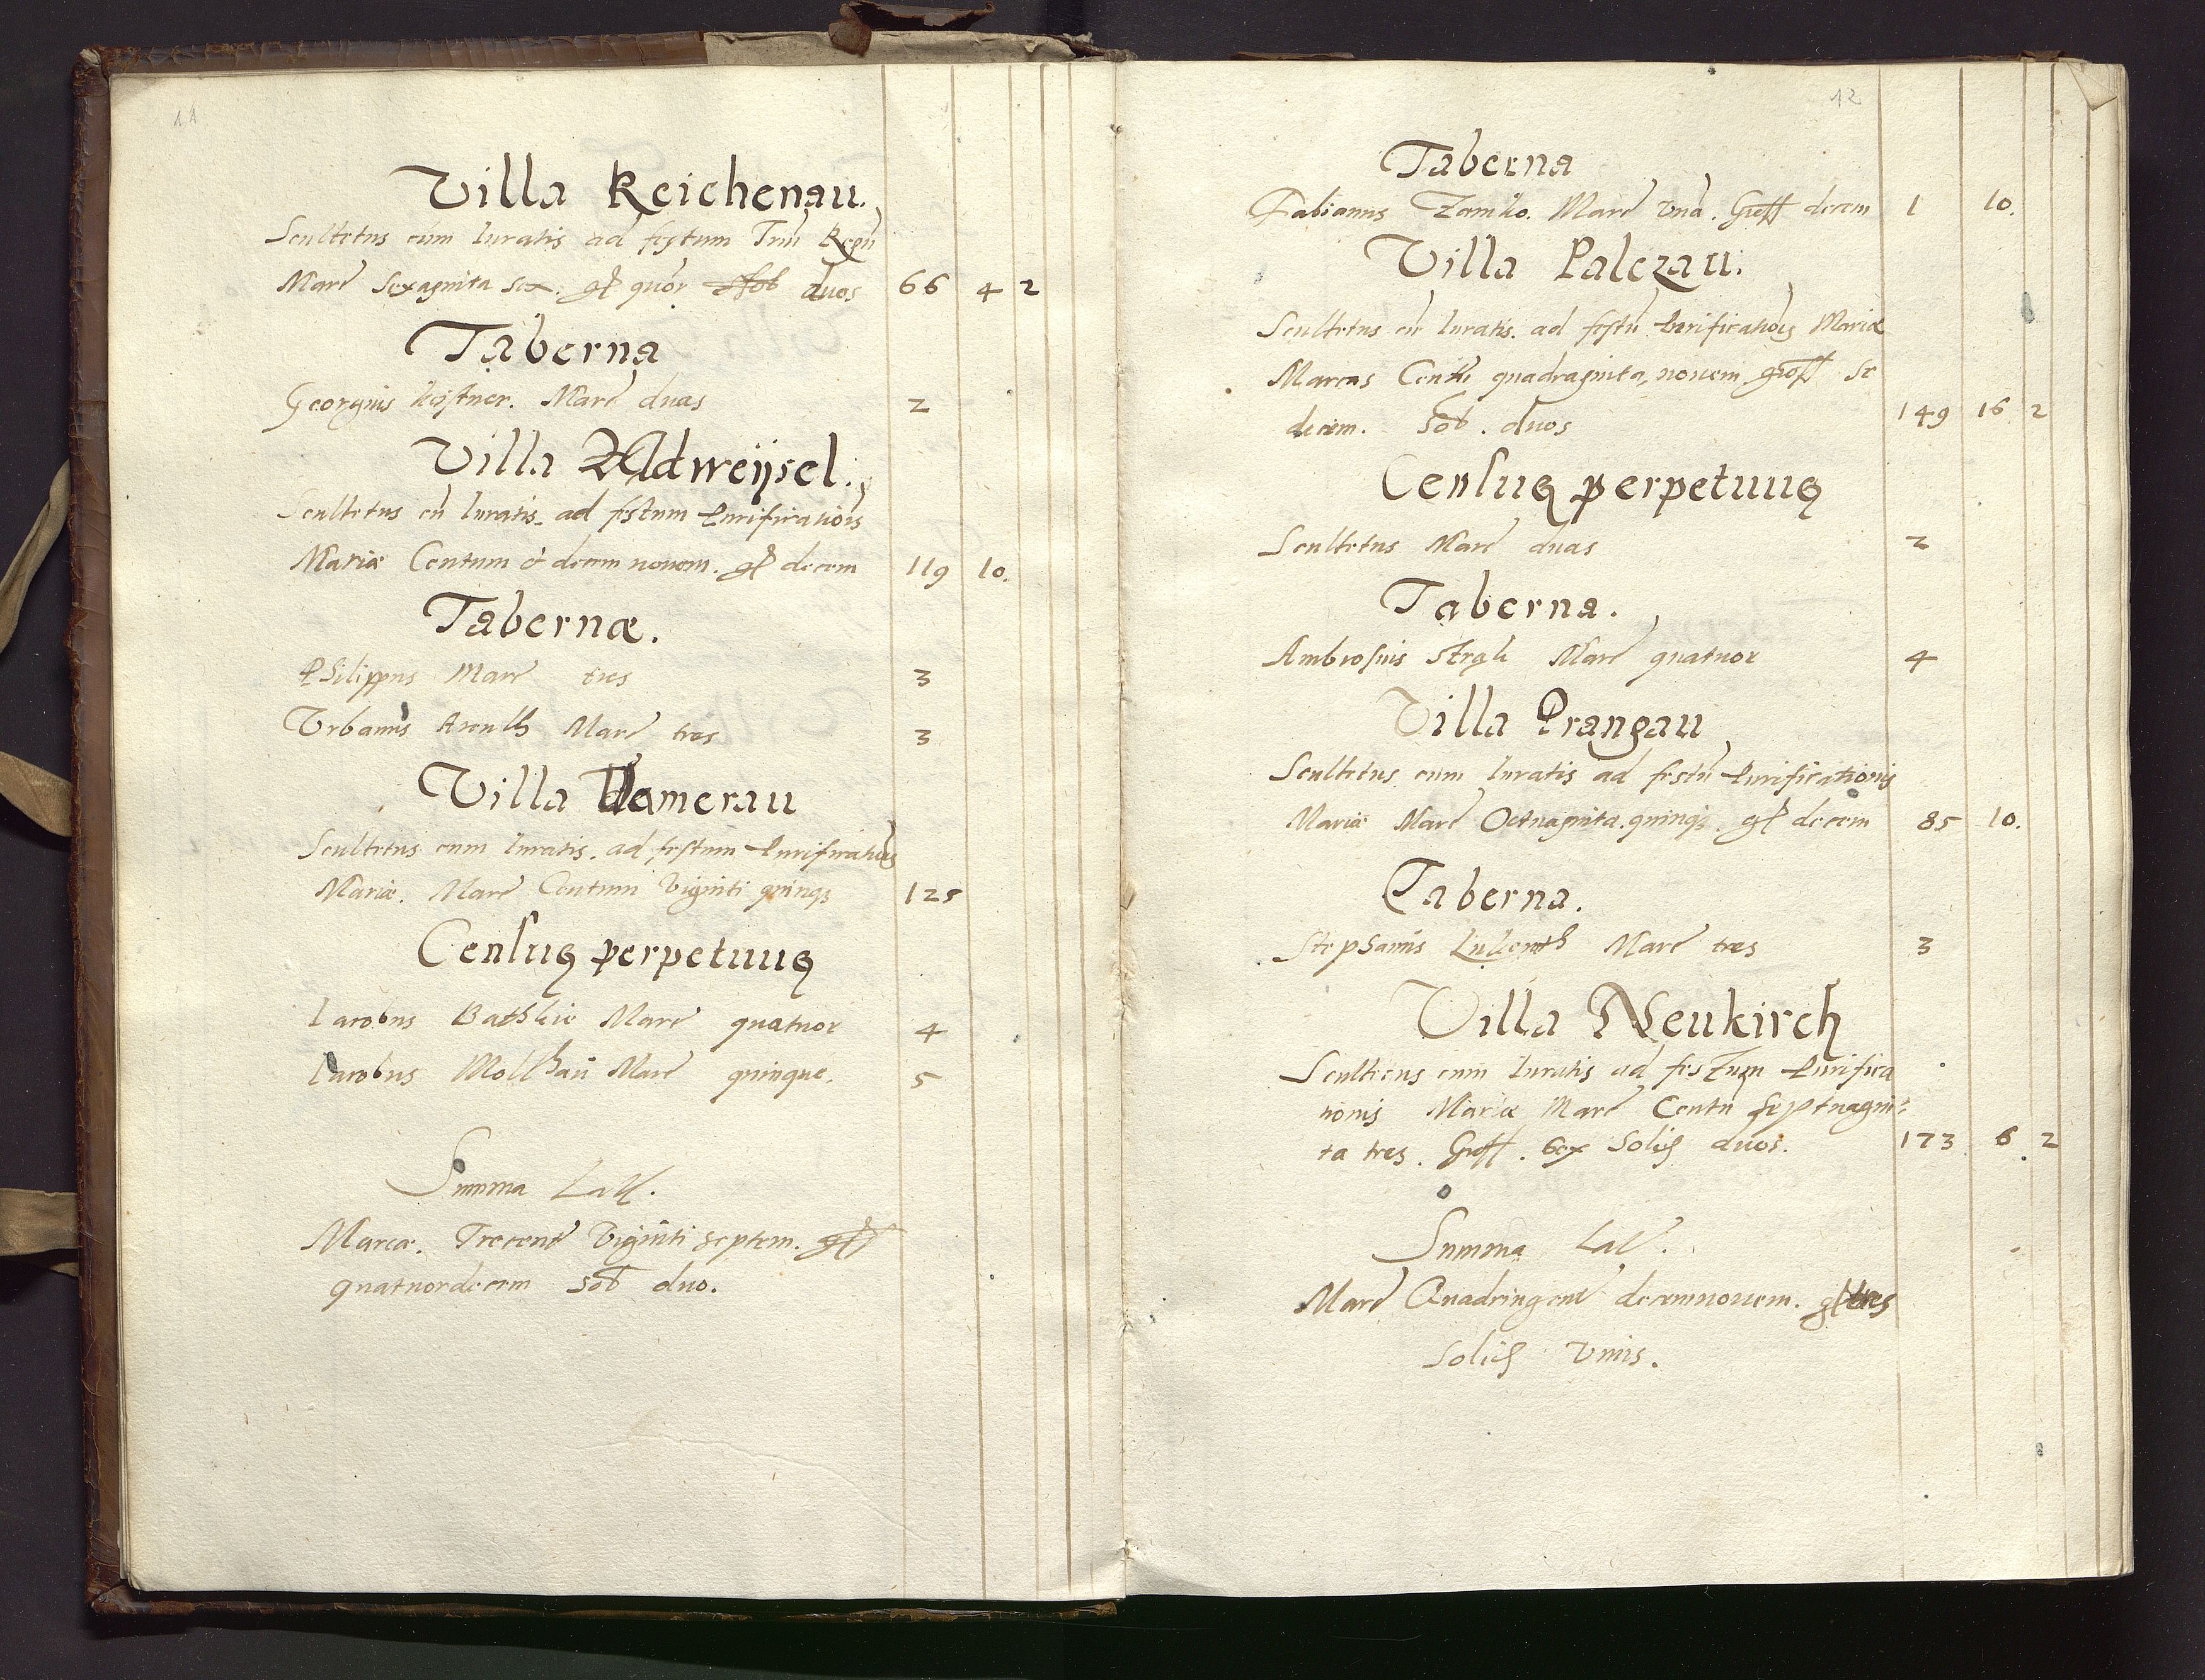 11
Villa Reichenau.
Scultetus cum Iuratis ad festum Triũ Regũ
Marc Sexaginta sex. gꝭ quor sob duos 66 4 2
Taberna
Georgius Marc duas 2
Villa Aldweijsel.
Scultetus cũ Iuratis. ad festum Purificatiõis
Mariæ Centum & decem novem. gꝭ decem 119 10.
Tabernæ.
Philippus Marc tres 3
Vrbanus Marc tres 3
Villa Damerau
Scultetus cum Iuratis. ad festum Purificatiõis
Mariæ. Marc Centum Viginti quinqꝫ 125
Census perpetuus
Iacobus Marc quatuor 4
Iacobus Marc quinque. 5
Summa Latꝭ.
Marcæ. Trecent Viginti septem. gꝭ
quatuordecem sob duo.
12
Taberna
Fabianus Zamko. Marc Vnã. Groff decem 1 10.
Villa Palczau.
Scultetus cũ Iuratis. ad festũ Purificatiõis Mariæ
Marcas Centũ quadraginta, novem groff Se
decem. Sob. duos 149 16 2
Census perpetuus
Scultetus Marc duas 2
Taberna.
Ambrosius Marc quatuor 4
Villa Prangau
Scultetus cum Iuratis ad festũ Purificationis
Mariæ Marc Octuaginta. quinqꝫ. gꝭ decem 85 10.
Taberna.
Stephanus Marc tres 3
Villa Neukirch
Scultetus cum Iuratis ad festum Purifica
tionis Mariæ Marc Centũ septuagin:
ta tres. Groff. sex Solid duos. 173 6 2
Summa Latꝭ.
Marc Quadringent decemnovem. gꝭ tres
Solid Vnus.